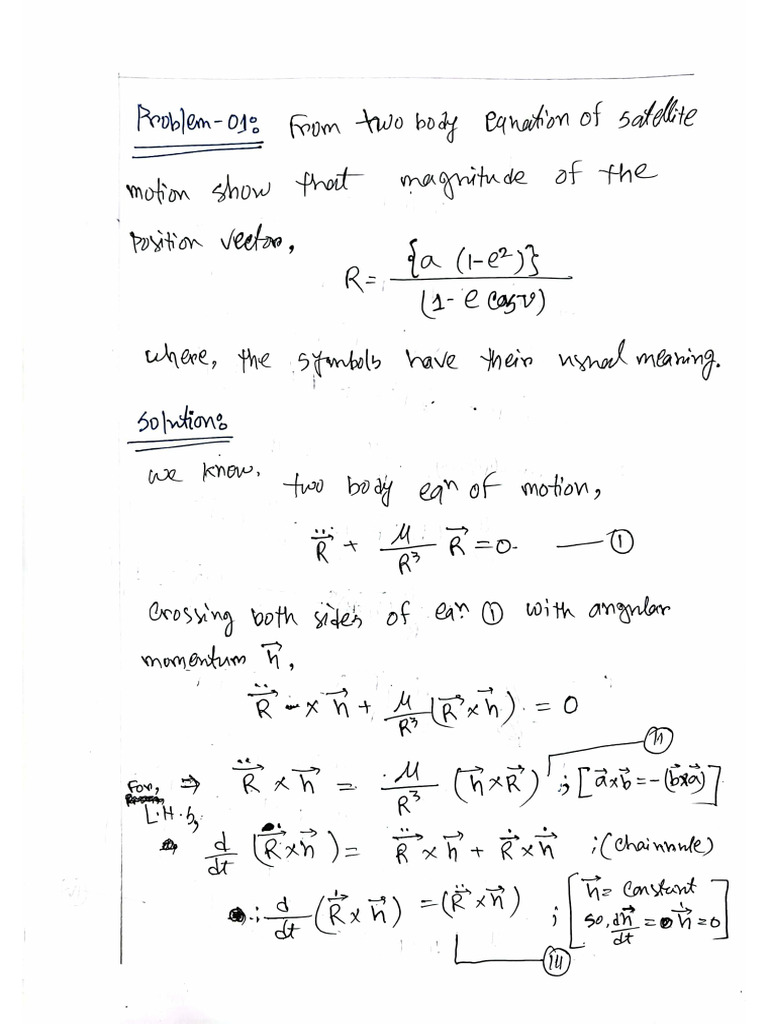 Problem-01: From two body equation of satellite
motion show that magnitude of the
position vector,
R = {a (1-e²)} / (1- e cosν)
where, the symbols have their usual meaning.
Solution:
we know, two body eqn of motion,
R̈⃗ + μ/R³ R⃗ = 0. —— ①
Crossing both sides of eqn ① with angular
momentum h⃗,
R̈⃗ × h⃗ + μ/R³ (R⃗ × h⃗) = 0
⇒ R̈⃗ × h⃗ = μ/R³ (h⃗ × R⃗) ; [a⃗×b⃗ = -(b⃗×a⃗)] —— ⑪
For,
L.H.S,
d/dt (Ṙ⃗ × h⃗) = R̈⃗ × h⃗ + Ṙ⃗ × ḣ⃗ ; (chain rule)
∴ d/dt (Ṙ⃗ × h⃗) = (R̈⃗ × h⃗) ; [h⃗ = constant so, dh⃗/dt = ḣ⃗ = 0] —— ⑪⑪